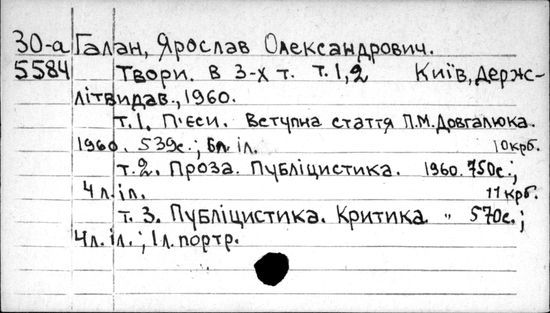 30-а Галан, Ярослав Олександрович.
5584 Твори. В 3-х т. т. 1, 2 Київ, Держ-
літвидав., 1960.
т. 1. П'єси. Вступна стаття П.М. Довгалюка.
1960. 539с.; 6л. іл. 10крб.
т. 2. Проза. Публіцистика. 1960. 750с.;
4 л. іл. 11 крб.
т. 3. Публіцистика. Критика. " 570с.;
4л. іл.; 1л. портр.